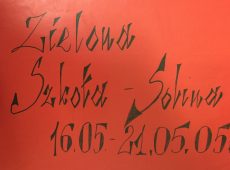 Zielona
Szkoła - Solina
16.05.-21.05.05